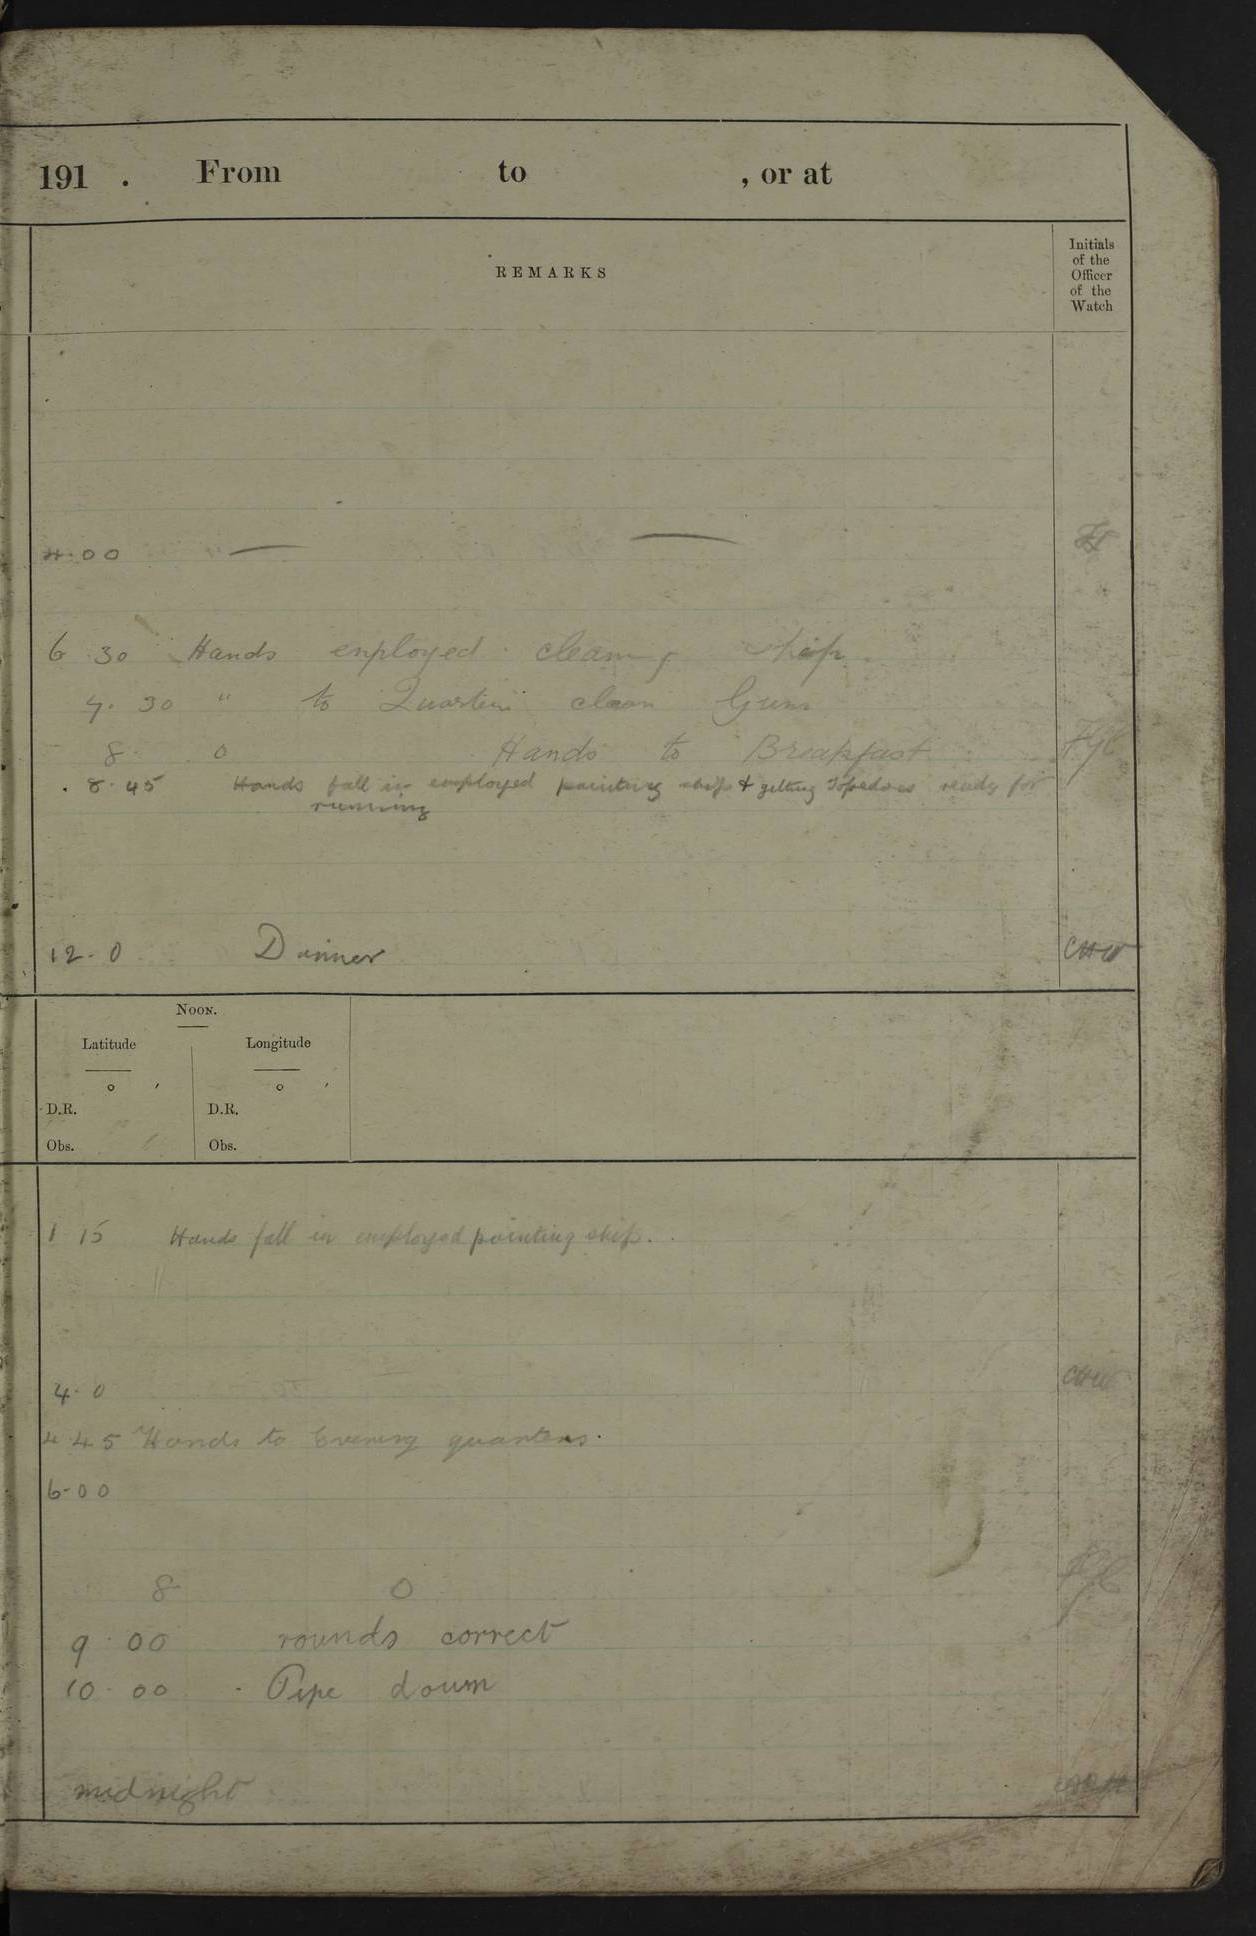 191 . From to , or at
REMARKS
Initials
of the
Officer
of the
Watch
4.00 — —
6 30 Hands employed cleaning ship.
7. 30 " to Quarters clean Guns
8. 0 Hands to Breakfast
8.45 Hands fall in employed painting ship & getting Topedoes ready for
running
12.0 Dinner CHW
NOON.
Latitude Longitude
° ′ ° ′
D.R. D.R.
Obs. Obs.
1 15 Hands fall in employed painting ship.
4.0 CHW
4 45 Hands to Evening quarters.
6.00
8 0
9.00 rounds correct
10.00 Pipe down
midnight